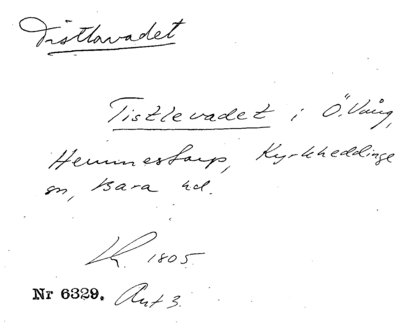 Tistlavadet
Tistlevadet i Ö. Vång,
Hemmestorp, Kyrkheddinge
sn, Bara hd.
1805.
Nr 6329. Akt 3.